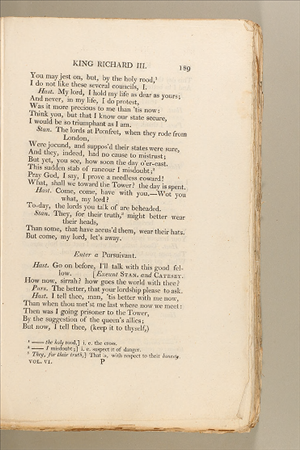 KING RICHARD III. 189
You may jest on, but, by the holy rood,¹
I do not like these several councils, I.
Hast. My lord, I hold my life as dear as yours;
And never, in my life, I do protest,
Was it more precious to me than 'tis now:
Think you, but that I know our state secure,
I would be so triumphant as I am.
Stan. The lords at Pomfret, when they rode from
London,
Were jocund, and suppos'd their states were sure,
And they, indeed, had no cause to mistrust;
But yet, you see, how soon the day o'er-cast.
This sudden stab of rancour I misdoubt;²
Pray God, I say, I prove a needless coward!
What, shall we toward the Tower? the day is spent.
Hast. Come, come, have with you.—Wot you
what, my lord?
To-day, the lords you talk of are beheaded.
Stan. They, for their truth,³ might better wear
their heads,
Than some, that have accus'd them, wear their hats.
But come, my lord, let's away.
Enter a Pursuivant.
Hast. Go on before, I'll talk with this good fel-
low. [Exeunt STAN. and CATESBY.
How now, sirrah? how goes the world with thee?
Purs. The better, that your lordship please to ask.
Hast. I tell thee, man, 'tis better with me now,
Than when thou met'st me last where now we meet:
Then was I going prisoner to the Tower,
By the suggestion of the queen's allies;
But now, I tell thee, (keep it to thyself,)
¹ —— the holy rood,] i. e. the cross.
² —— I misdoubt;] i. e. suspect it of danger.
³ They, for their truth,] That is, with respect to their honesty.
VOL. VI. P